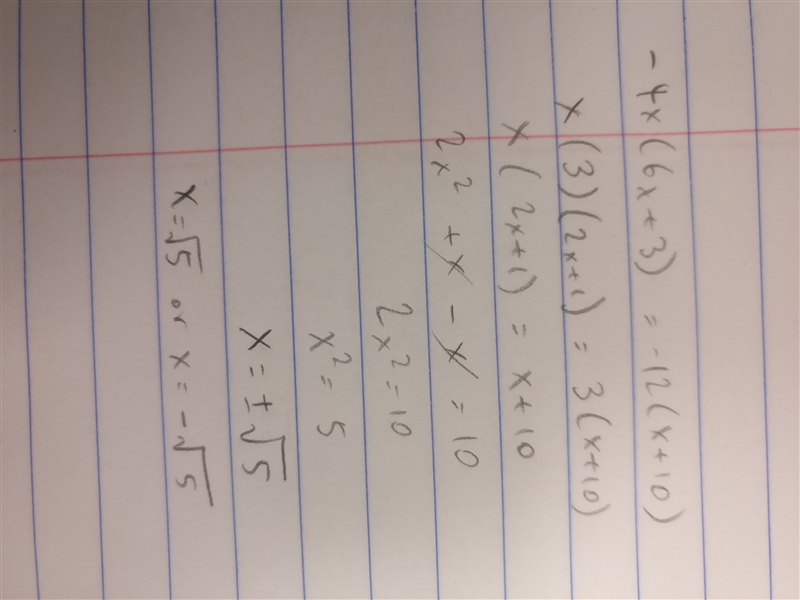 -4x(6x+3) = -12(x+10)
x(3)(2x+1) = 3(x+10)
x(2x+1) = x+10
2x² + x - x = 10
2x² = 10
x² = 5
x = ±√5
x = √5 or x = -√5